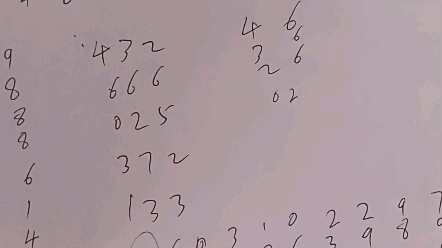 4 6
9 432 6
3 6
8 666 2
8 025 02
8
6 372
1 133
4 3 1 0 2 2 9 7
3 9 8